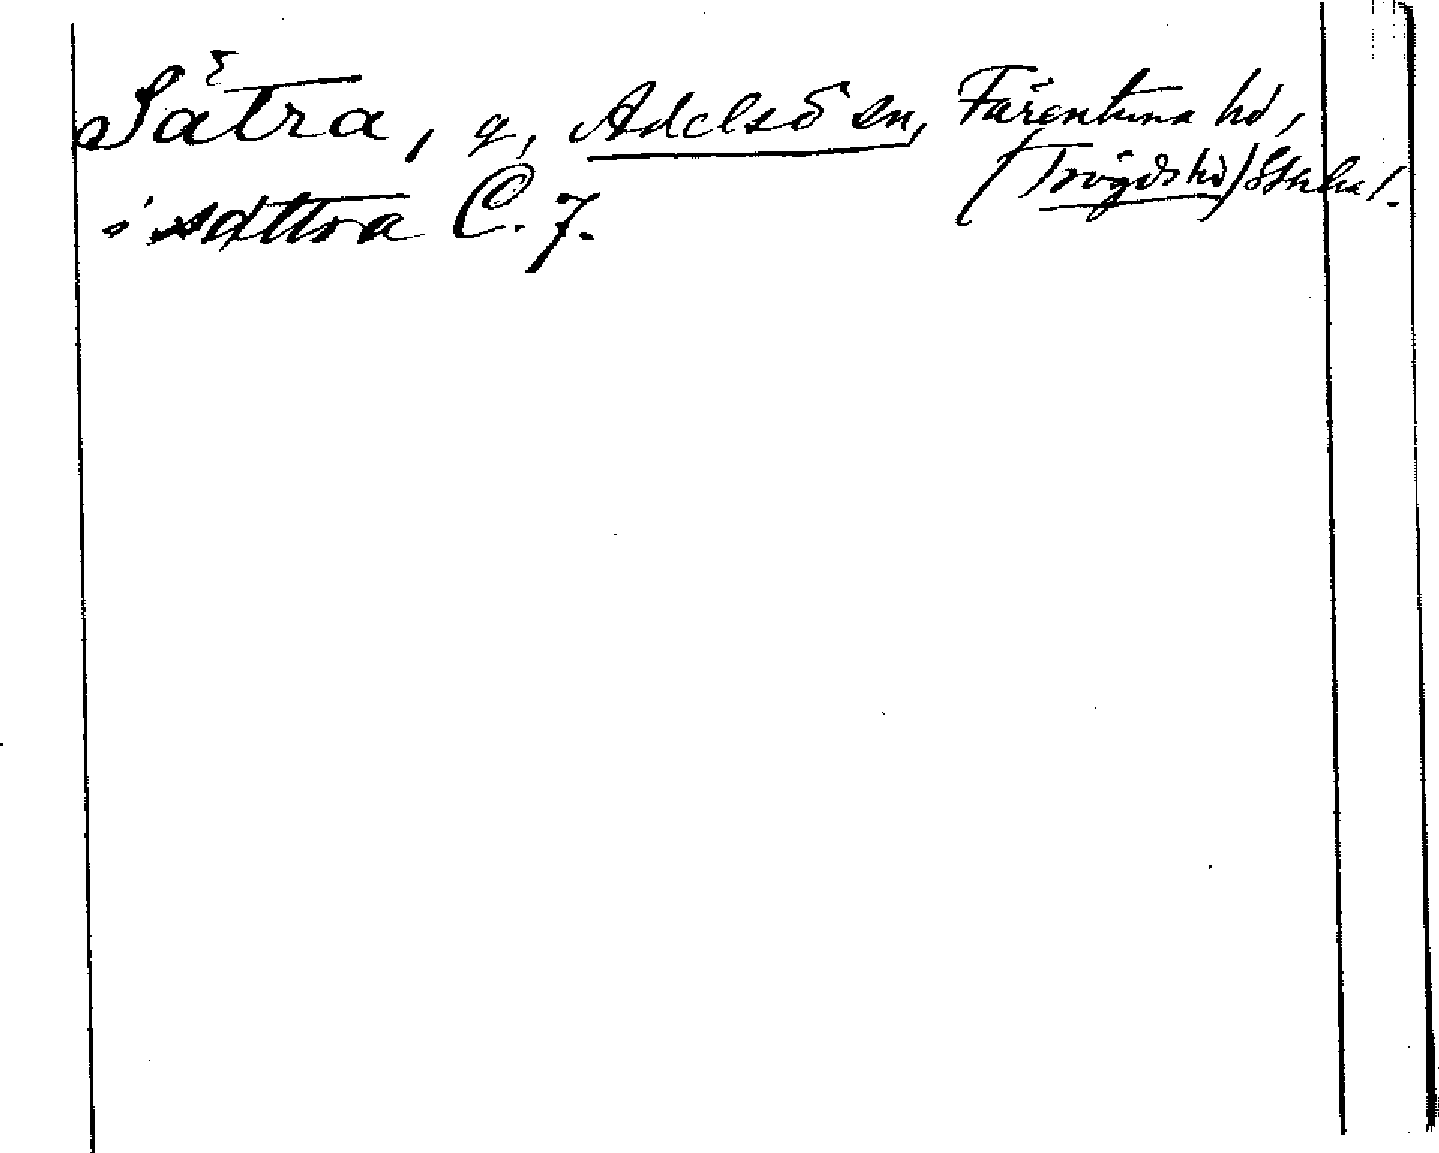 Sätra, g, Adelsö sn, Färentuna hd,
(Trögds hd) Sthlms l.
i Sättra C. 7.